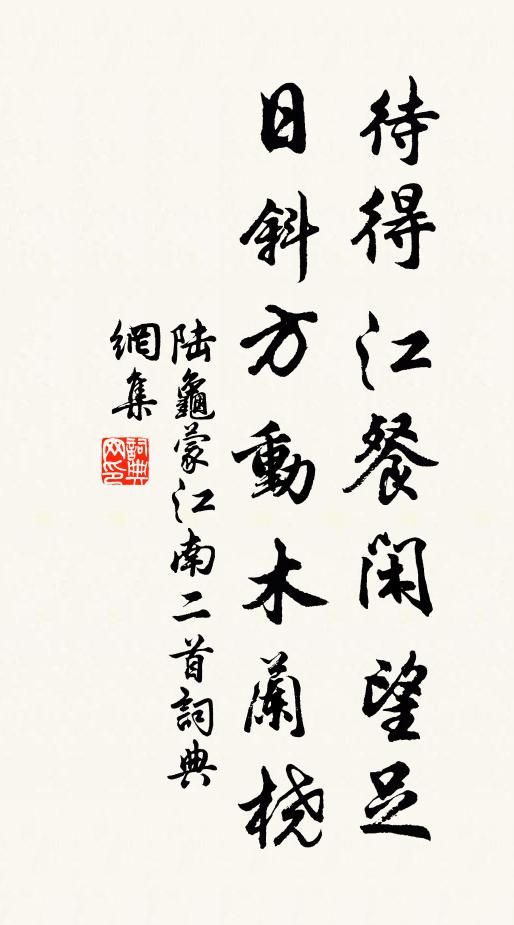 待得江餐閑望足
日斜方動木蘭桡
陆龜蒙江南二首詞典
網集
詞典
网印